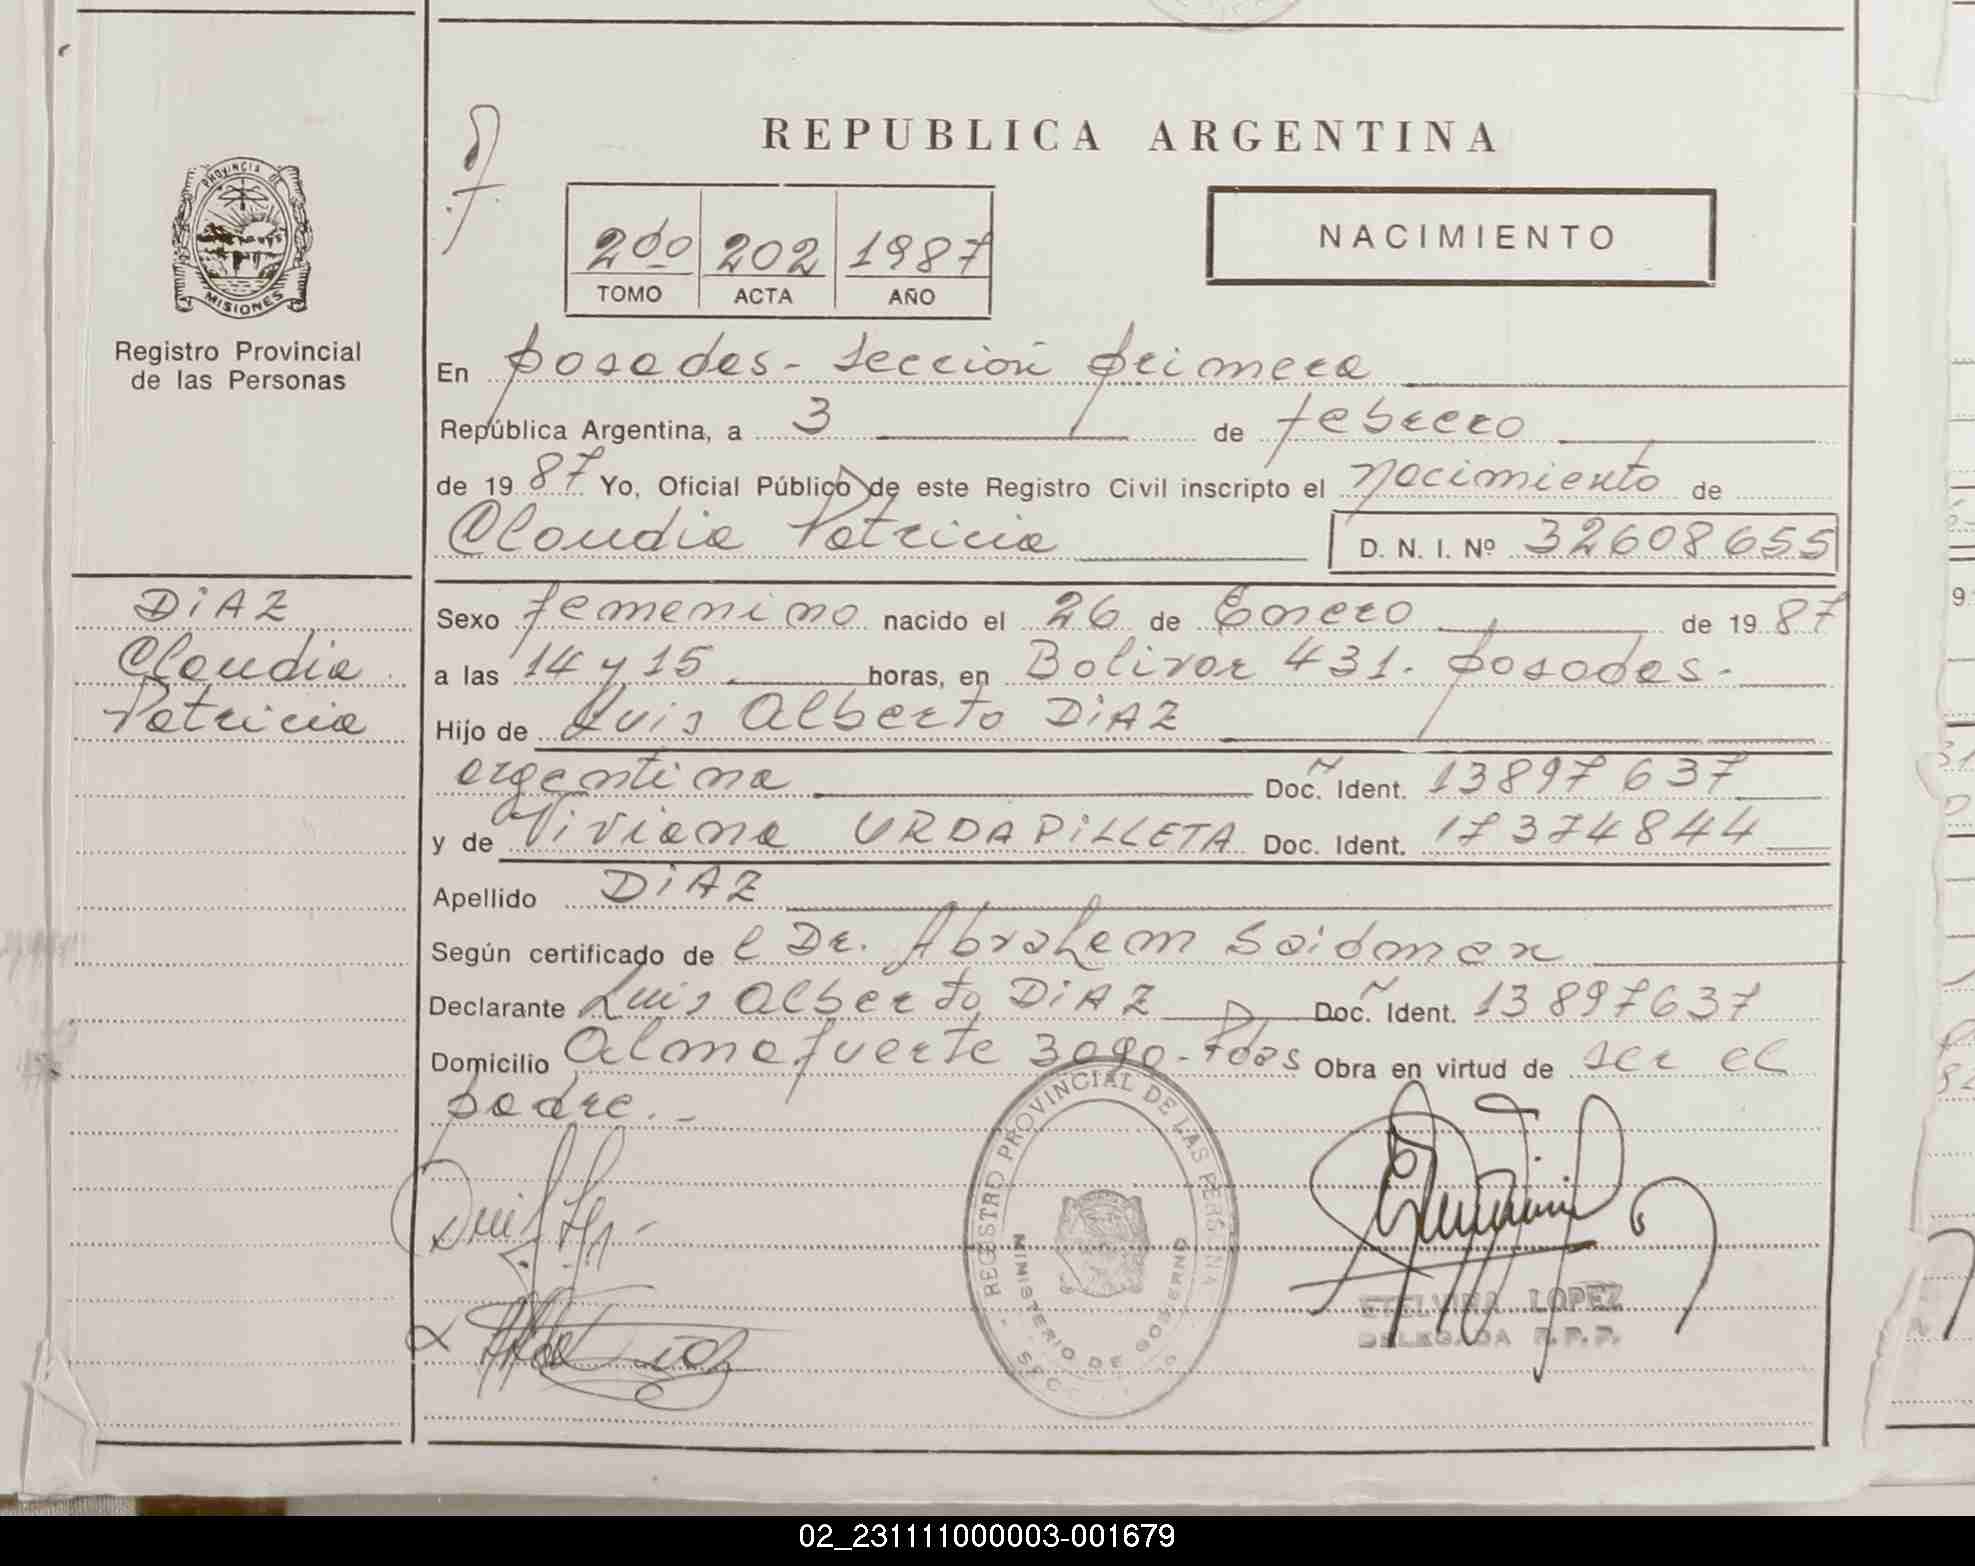 REPUBLICA ARGENTINA
PROVINCIA DE
MISIONES
Registro Provincial
de las Personas
2do 202 1987
TOMO ACTA AÑO
NACIMIENTO
En Posadas - Sección primera
República Argentina, a 3 de febrero
de 19 87 Yo, Oficial Público de este Registro Civil inscripto el nacimiento de
Claudia Patricia D. N. I. Nº 32608655
DiAZ
Claudia
Patricia
Sexo femenino nacido el 26 de Enero de 19 87
a las 14 y 15 horas, en Bolivar 431. Posadas-
Hijo de Luis Alberto DiAZ
argentina Doc. Ident. 13897637
y de Viviana URDAPiLLETA Doc. Ident. 17374844
Apellido DiAZ
Según certificado de l Dr. Abraham Saidman
Declarante Luis Alberto DiAZ Doc. Ident. 13897637
Domicilio Almafuerte 3090-Pdas Obra en virtud de ser el
padre.-
REGISTRO PROVINCIAL DE LAS PERSONAS
MINISTERIO DE GOBIERNO
ETELVINA LOPEZ
DELEGADA R.P.P.
02_231111000003-001679